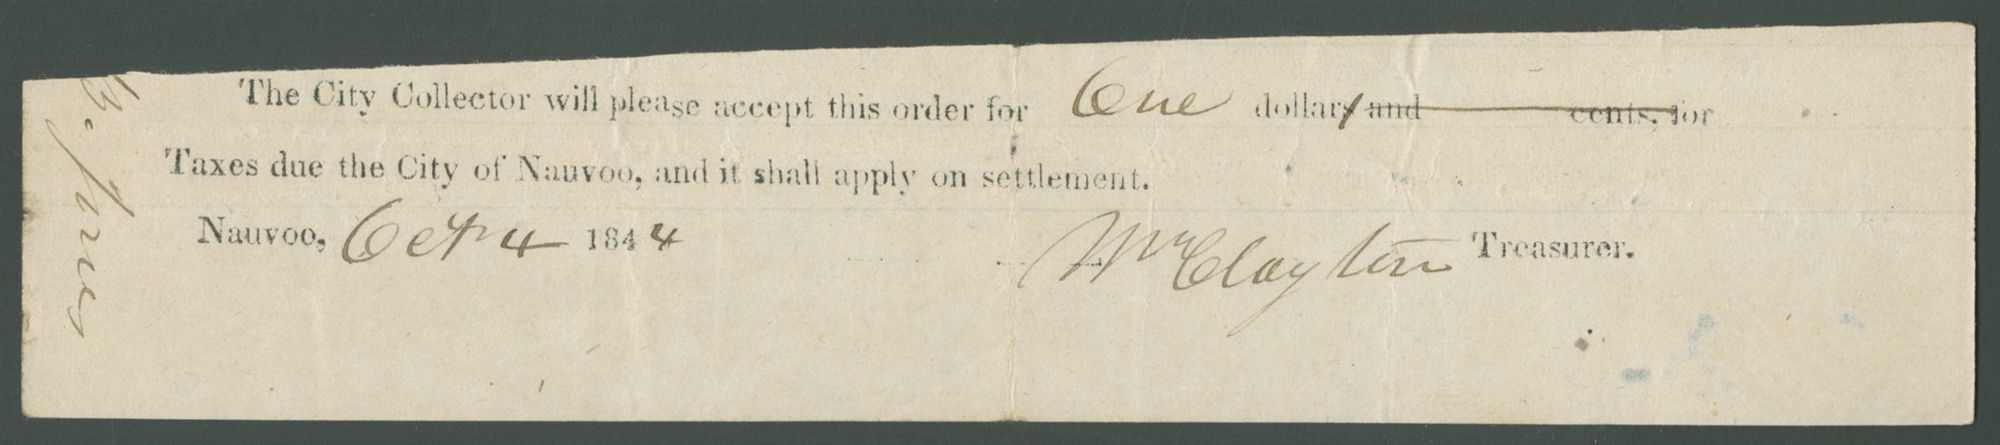 The City Collector will please accept this order for One dollar and cents, for
Taxes due the City of Nauvoo, and it shall apply on settlement.
Nauvoo, Oct 4 1844 Wm Clayton Treasurer.
B. Jones